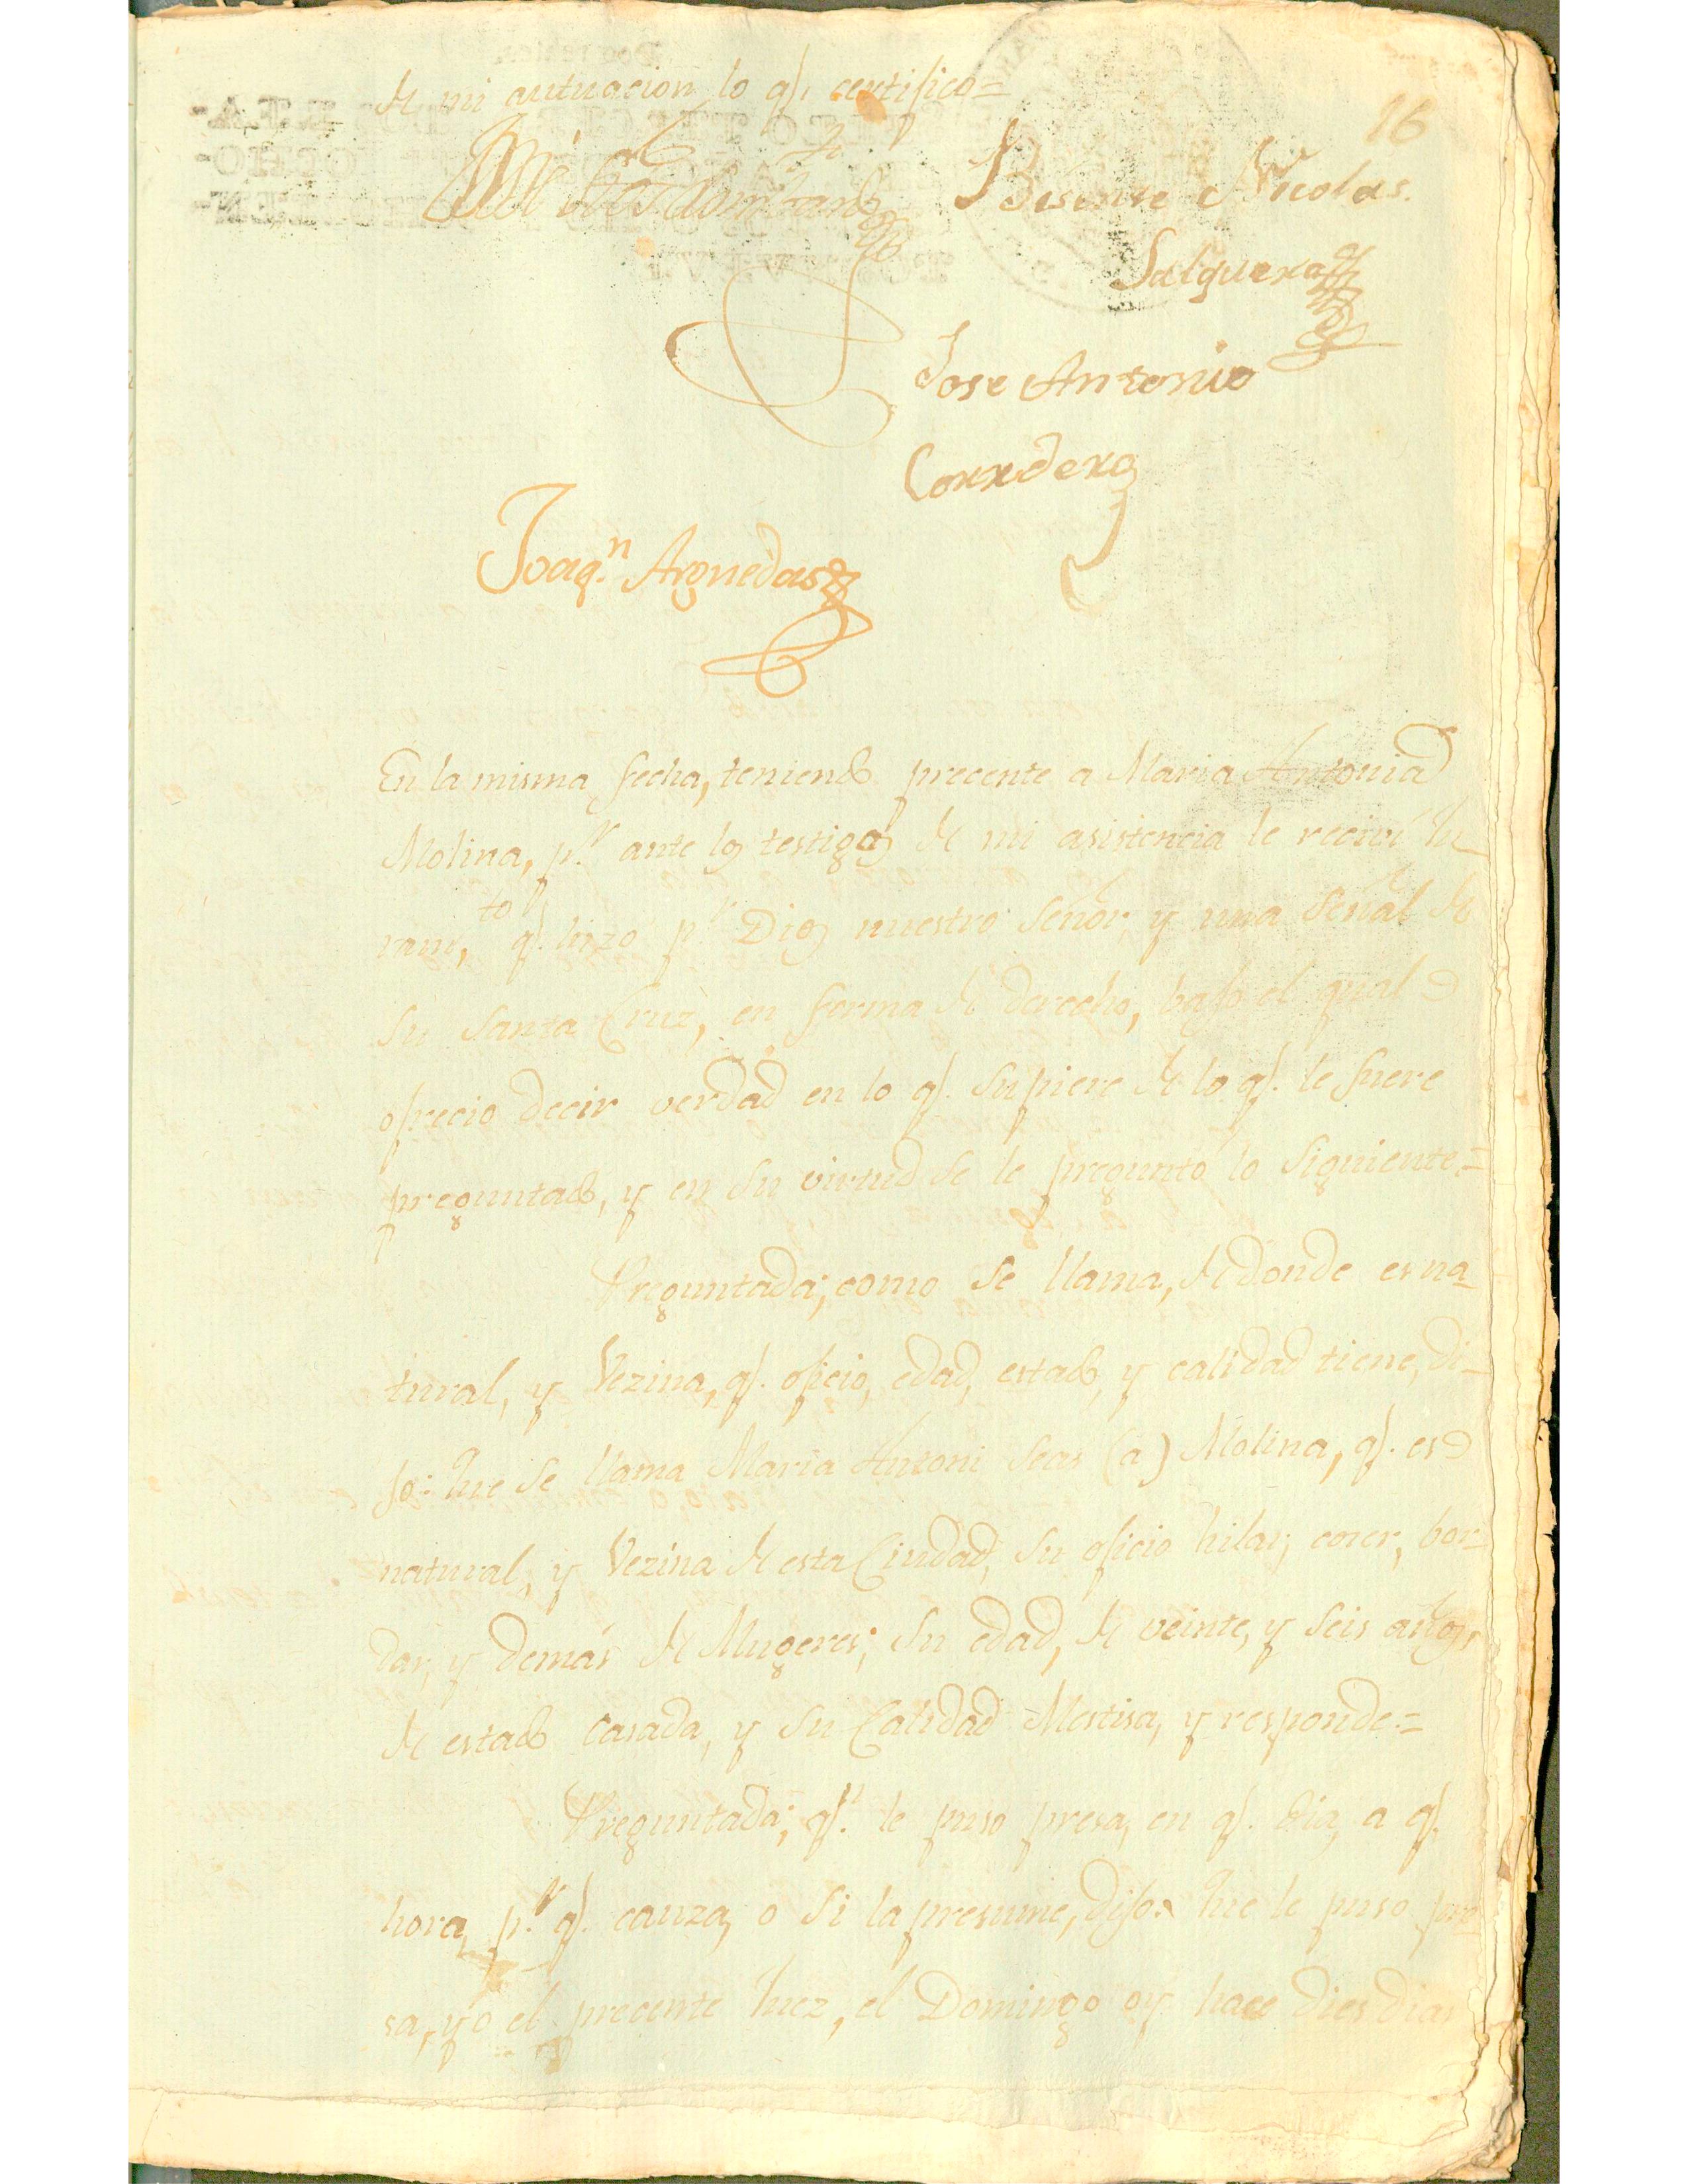 de mi actuacion lo q.e certifico=
16
Bisente Nicolas.
Salguera
Jose Antonio
Corrdero
Joaq.n Arguedas
En la misma fecha, teniendo precente a Maria Antonia
Molina, p.r ante los testigos de mi asistencia le reciví Ju-
ram.to q.e hizo p.r Dios nuestro Señor, y una Señal de
su Santa Cruz, en forma de derecho, bajo el qual
ofrecio decir verdad en lo q.e supiere de lo q.e le fuere
preguntado, y en su virtud se le preguntó lo siguiente=
Preguntada; como se llama, de donde es na-
tural, y Vezina, q.e oficio, edad, estado, y calidad tiene, di-
jo: Que se llama Maria Antoni Seas (a) Molina, q.e es
natural, y Vezina de esta Ciudad, su oficio hilar, coser, bor-
dar, y demás de Mugeres; su edad, de veinte, y seis años,
de estado Casada, y su Calidad Mestisa, y responde=
Preguntada; q.n le puso presa, en q.e dia, a q.e
hora, p.r q.e cauza, o si la presume, dijo: Que le puso pre
sa, yo el precente Juez, el Domingo oy hace dies dias